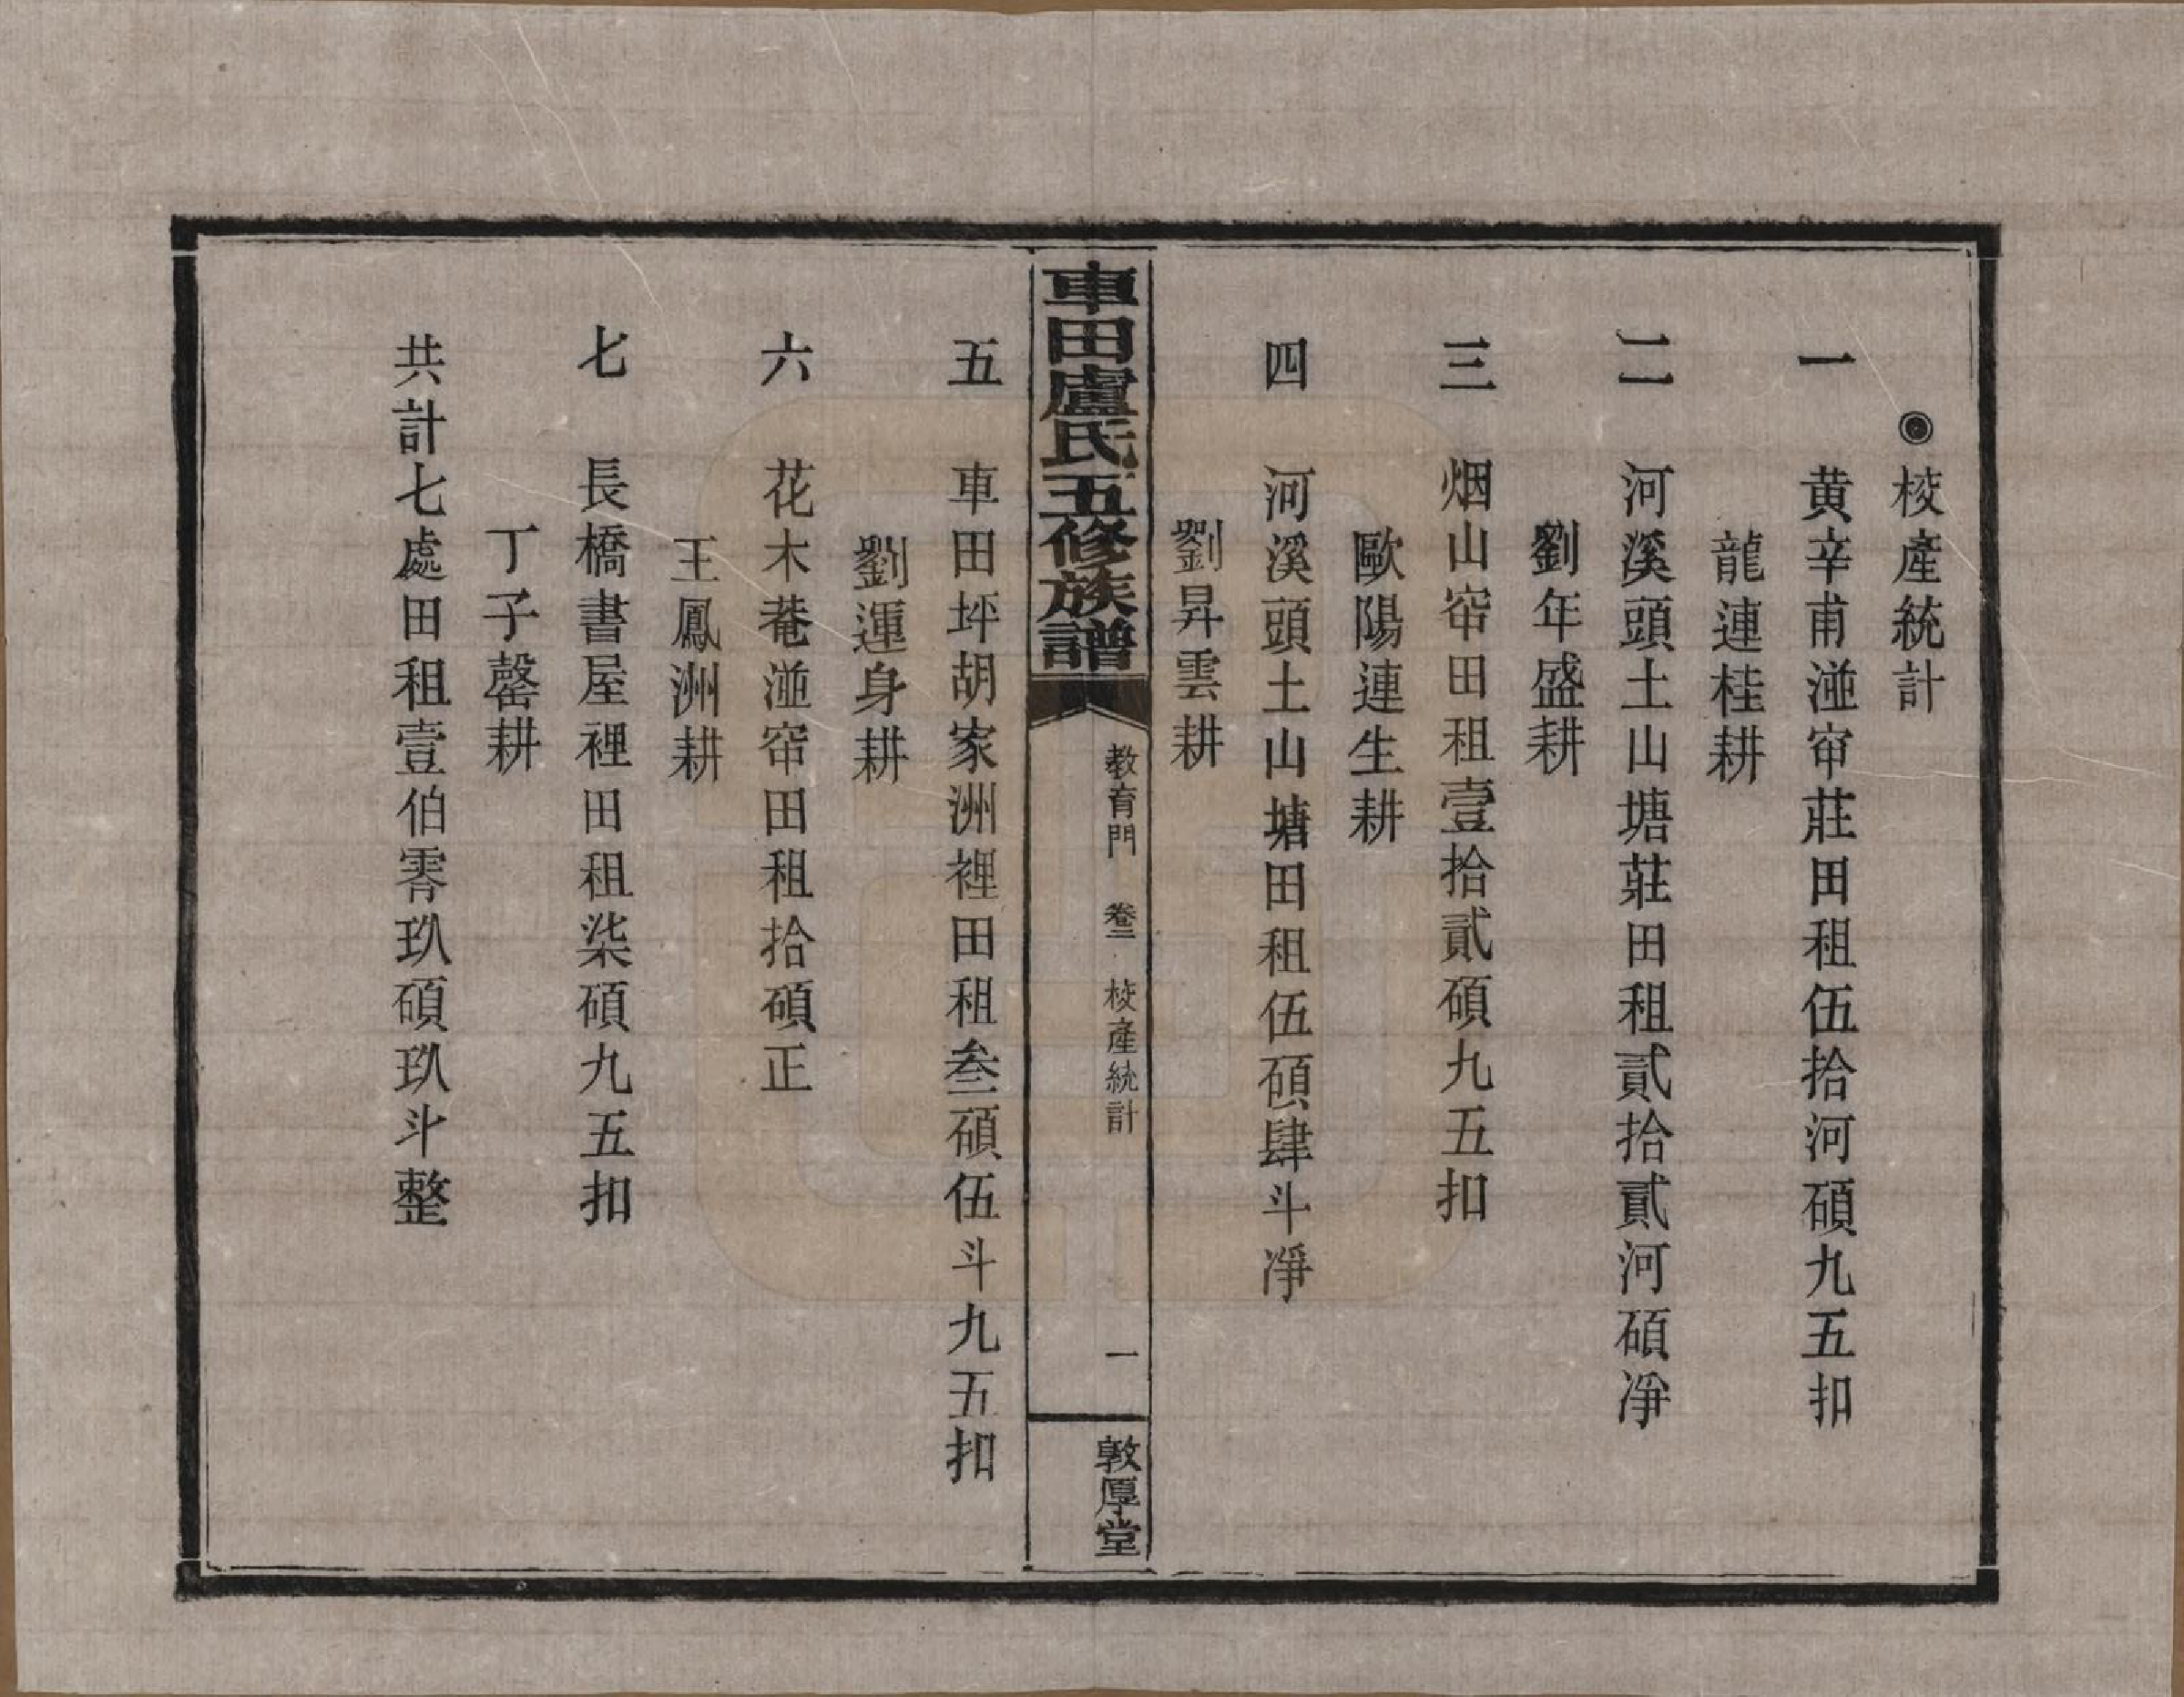 ◉校產統計
一　黄辛甫湴帘莊田租伍拾河碩九五扣
龍連桂耕
二　河溪頭土山塘莊田租貳拾貳河碩凈
劉年盛耕
三　烟山帘田租壹拾貳碩九五扣
歐陽連生耕
四　河溪頭土山塘田租伍碩肆斗凈
劉昇雲耕
車田盧氏五修族譜
教育門　卷二　校產統計
一
敦厚堂
五　車田坪胡家洲裡田租叁碩伍斗九五扣
劉運身耕
六　花木菴湴帘田租拾碩正
王鳳洲耕
七　長橋書屋裡田租柒碩九五扣
丁子罄耕
共計七處田租壹伯零玖碩玖斗整